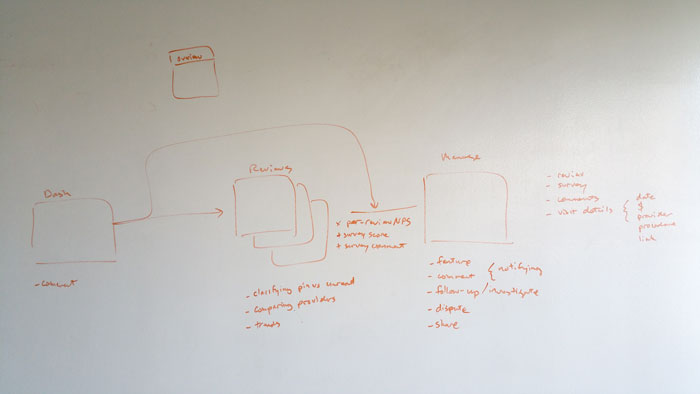 overview
Dash
- comment
Reviews
x per-review NPS
+ survey score
+ survey comment
- clarifying pins unread
- comparing providers
- trends
Manage
- feature
- comment { notifying
- follow-up / investigate
- dispute
- share
- review
- survey
- comments
- visit details { date
&
provider
procedure
link